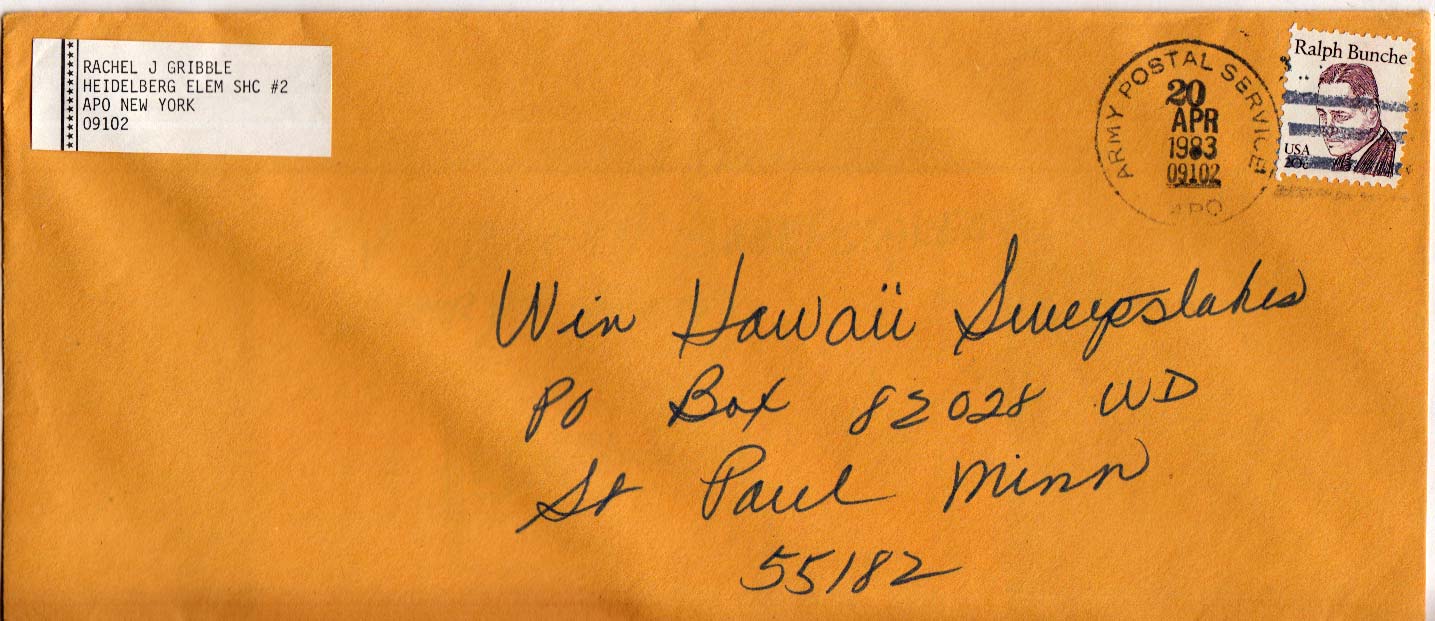 RACHEL J GRIBBLE
HEIDELBERG ELEM SHC #2
APO NEW YORK
09102
ARMY POSTAL SERVICE
20
APR
1983
09102
APO
Ralph Bunche
USA
20c
Win Hawaii Sweepstakes
PO Box 82028 WD
St Paul Minn
55182